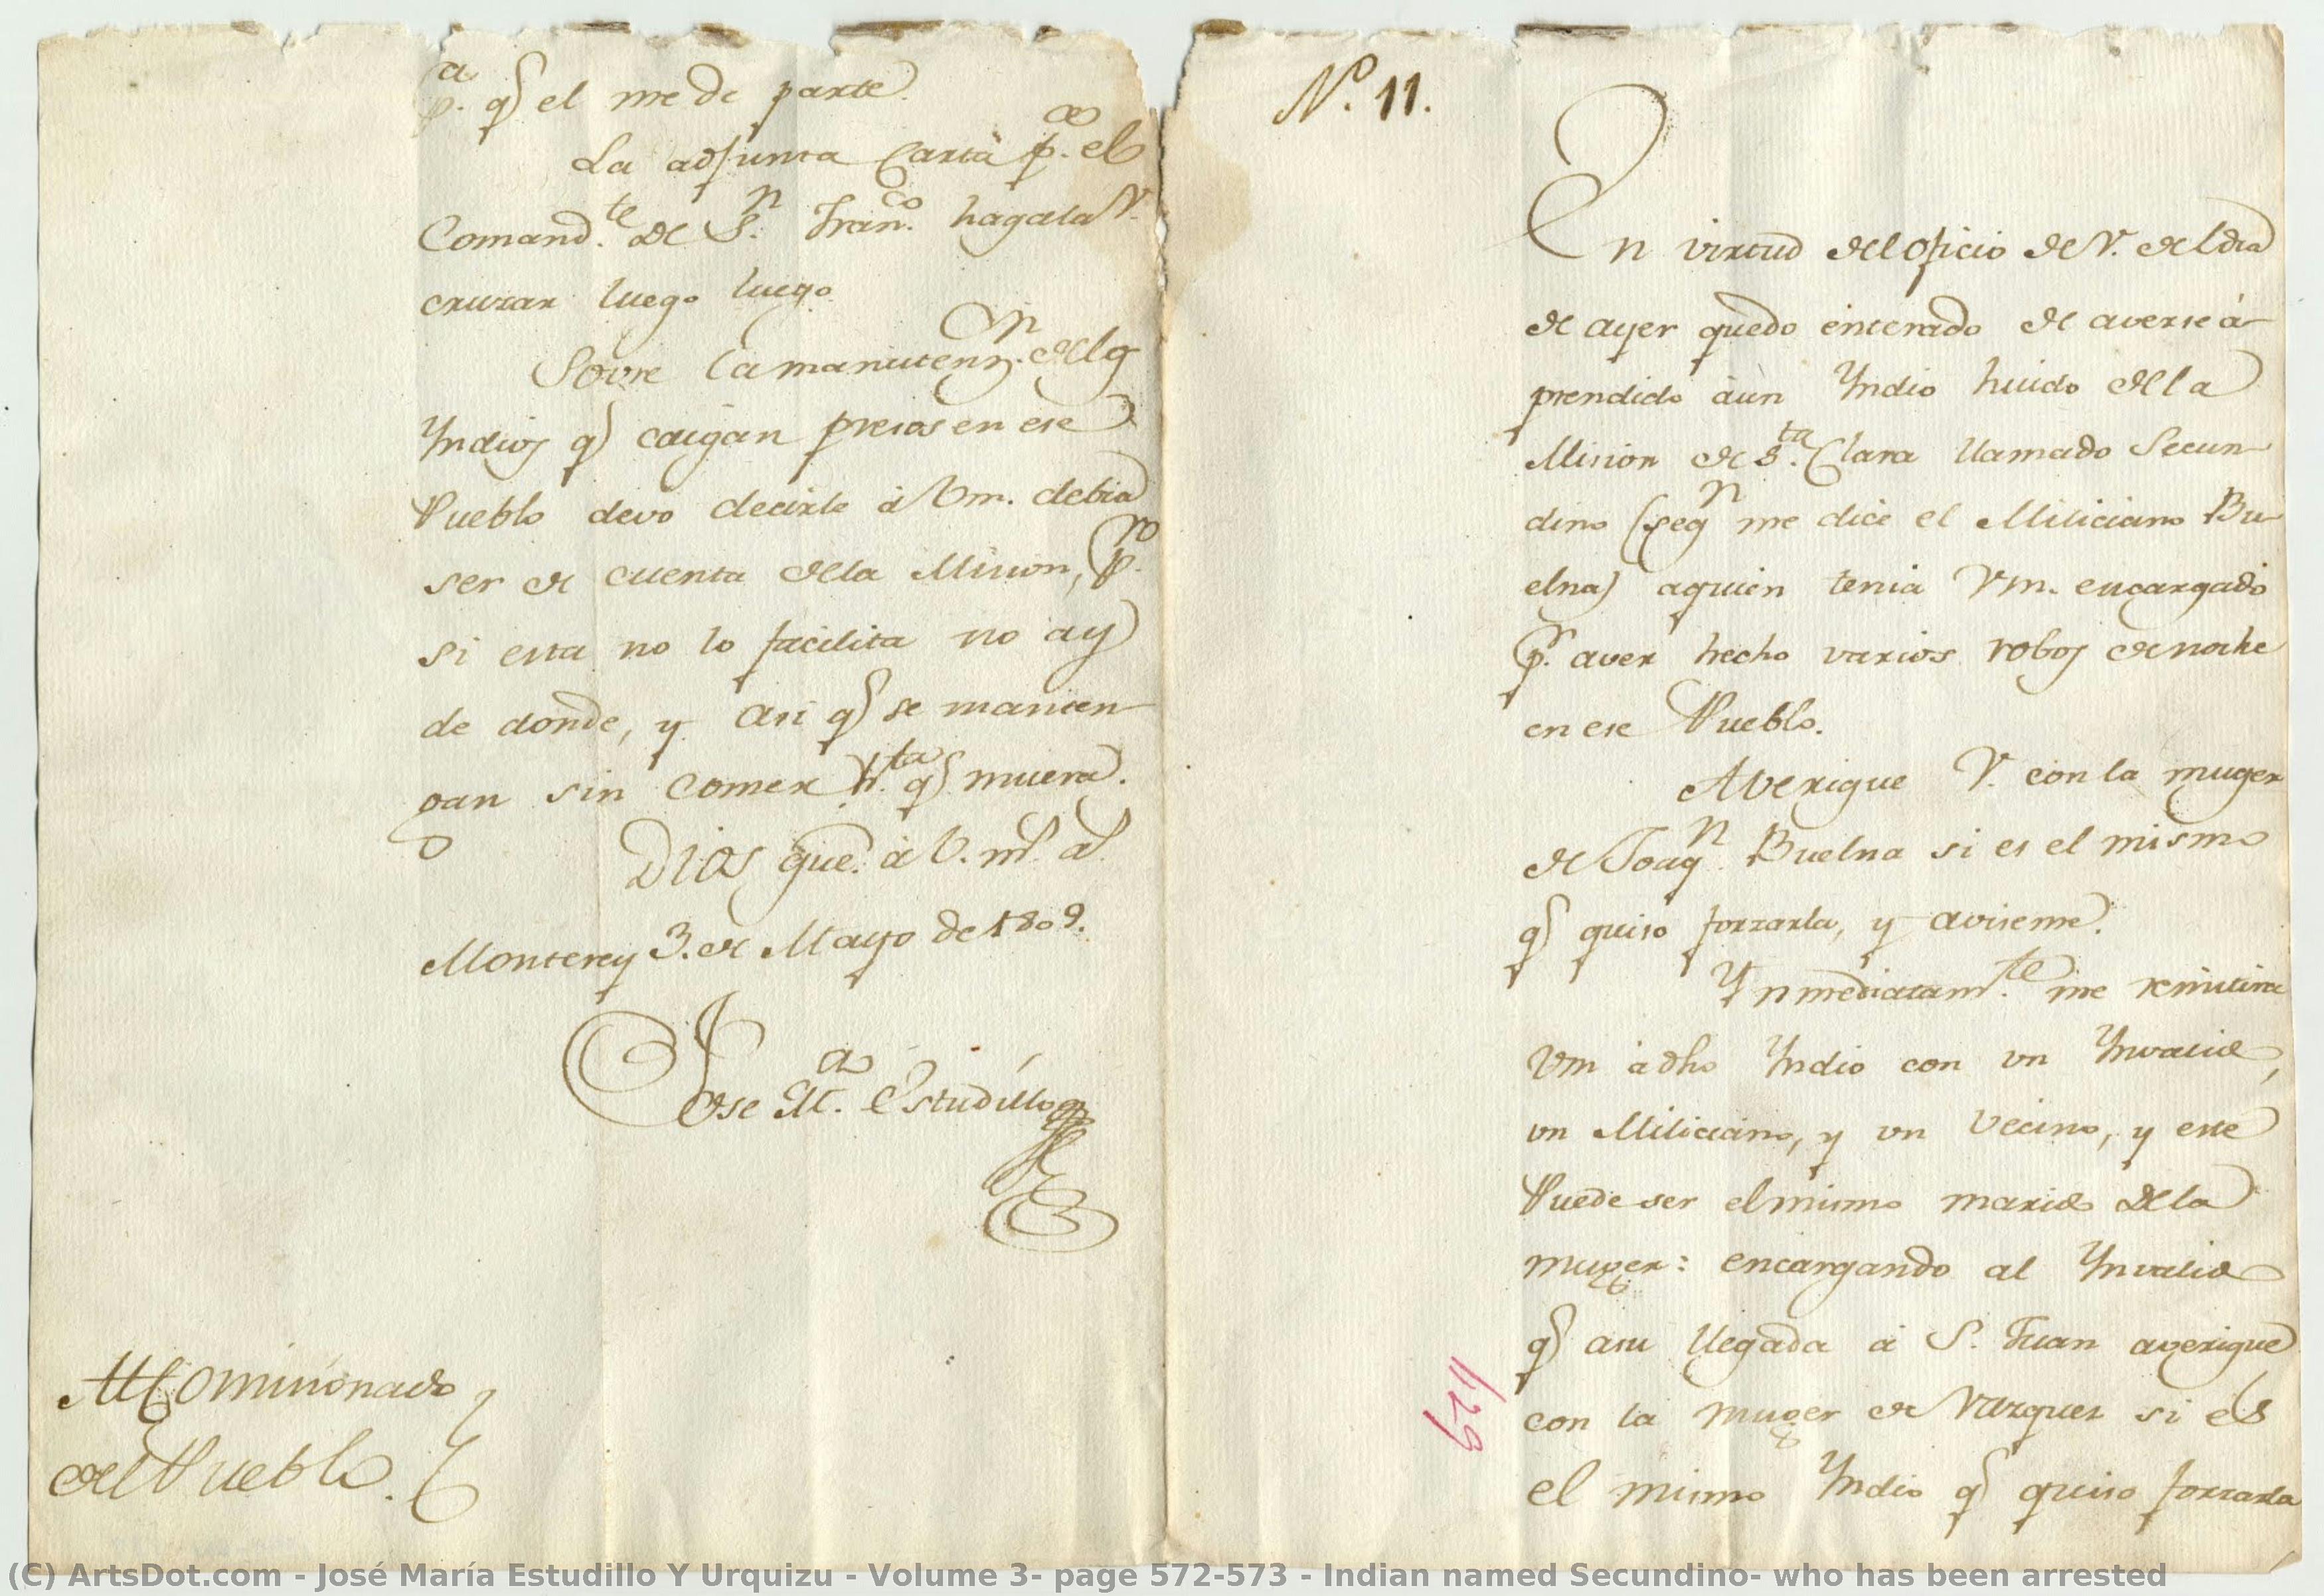 Nº. 11.
En virtud del Oficio de V. del dia
de ayer quedo enterado de averse á
prendido áun Yndio huido de la
Mision de Sta. Clara llamado Secun
dino (segn me dice el Miliciano Bu
elna) aquien tenia Vm. encargado
pr. aver hecho varios robos de noche
en ese Pueblo.
Averigue V. con la muger
de Joaqn. Buelna si es el mismo
q quiso forzarla, y aviseme.
Ynmediatamte. me remitira
Vm à dho Yndio con un Ynvalido,
un Miliciano, y un Vecino, y este
Puede ser el mismo marido de la
muger: encargando al Ynvalido
q asu llegada à S. Juan averigue
con la muger de Vazquez si es
el mismo Yndio q quiso forzarla
129
pa. q el me de parte.
La adjunta Carta pa. el
Comandte. de Sn. Franco. hagala V.
cruzar luego luego.
Sovre la manutenn. de los
Yndios q caigan presos en ese
Pueblo devo decirle à Vm. debia
ser de cuenta de la Mision, pro.
si esta no lo facilita no ay
de donde, y asi q se manten
gan sin comer hta. q muera.
DIOS gue. à V. ms. as.
Monterey 3. de Mayo de 1809.
Jose Ma. Estudillo
Al Comisionado
del Pueblo.
(C) ArtsDot.com - José María Estudillo Y Urquizu - Volume 3- page 572-573 - Indian named Secundino- who has been arrested